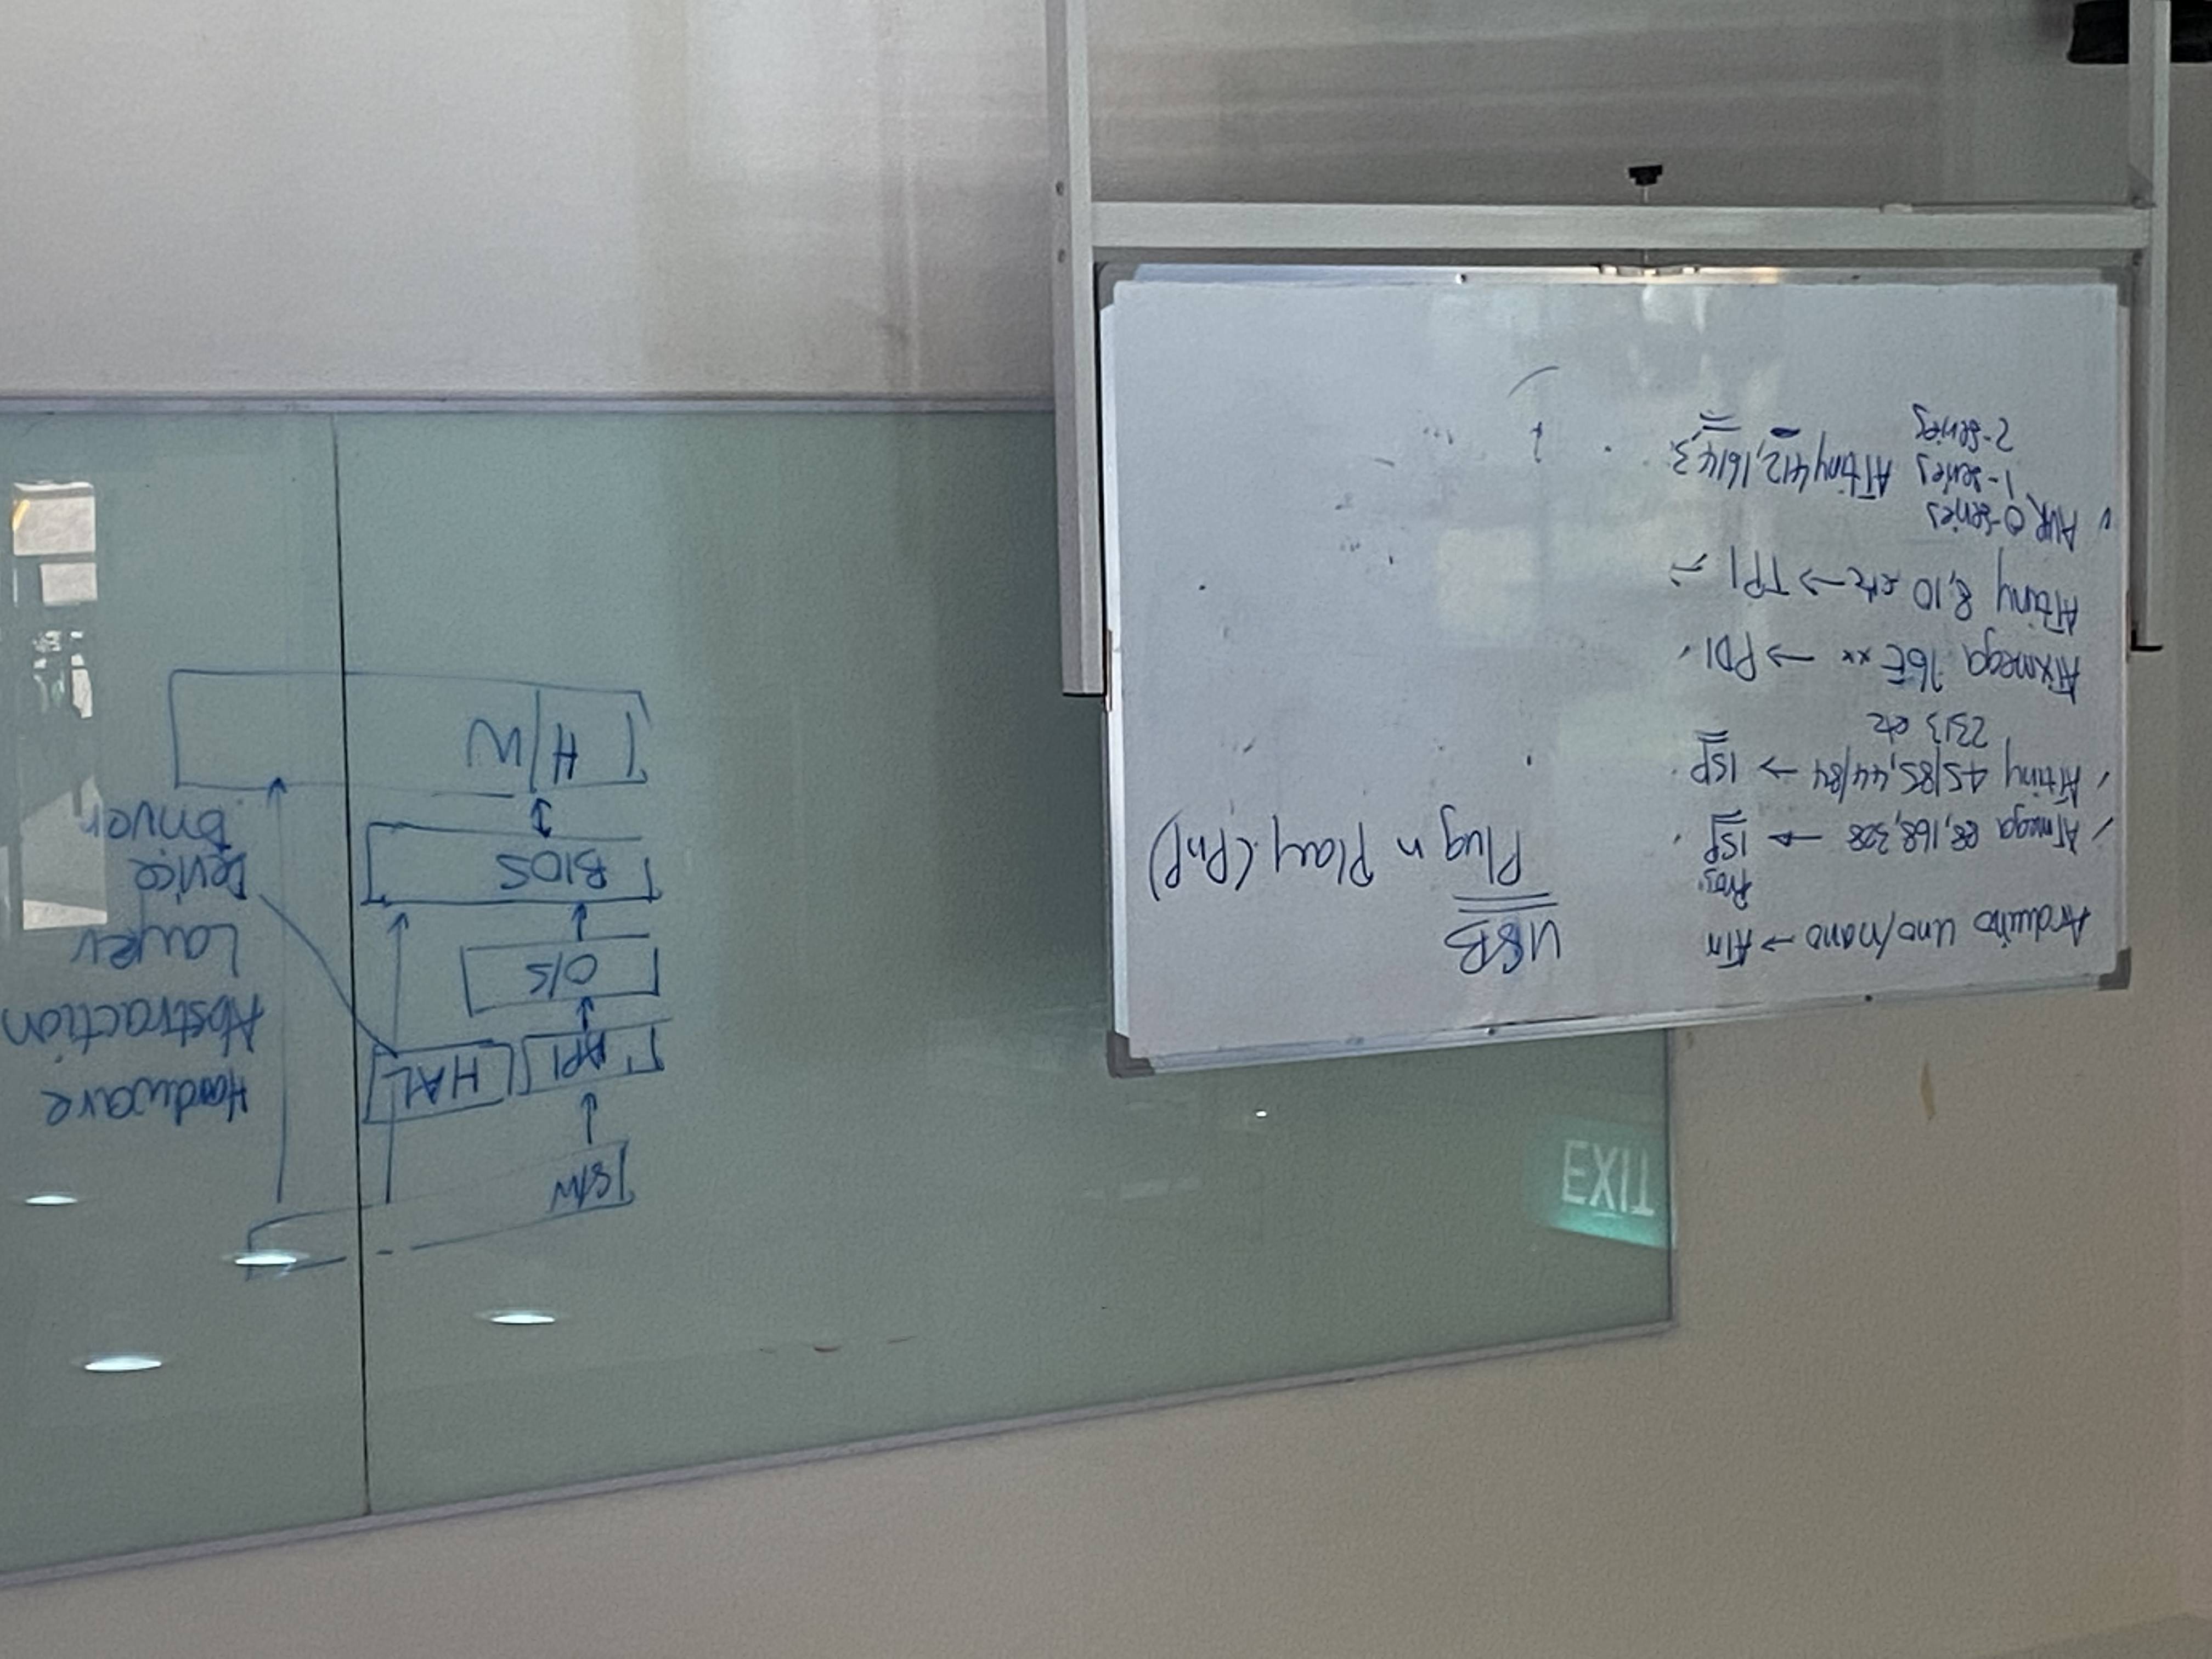 Arduino Uno/nano → ATm
Prog.
ATmega 88,168,328 → ISP
ATtiny 45/85,44/84 → ISP
2313 etc
ATxmega 16E xx → PDI
ATtiny 8,10 etc → TPI
AVR 0-series
1-series ATtiny 412,1614,3
2-series
USB
Plug n Play (PnP)
EXIT
S/W
API
HAL
O/S
BIOS
H/W
Hardware
Abstraction
Layer
Device
Driver